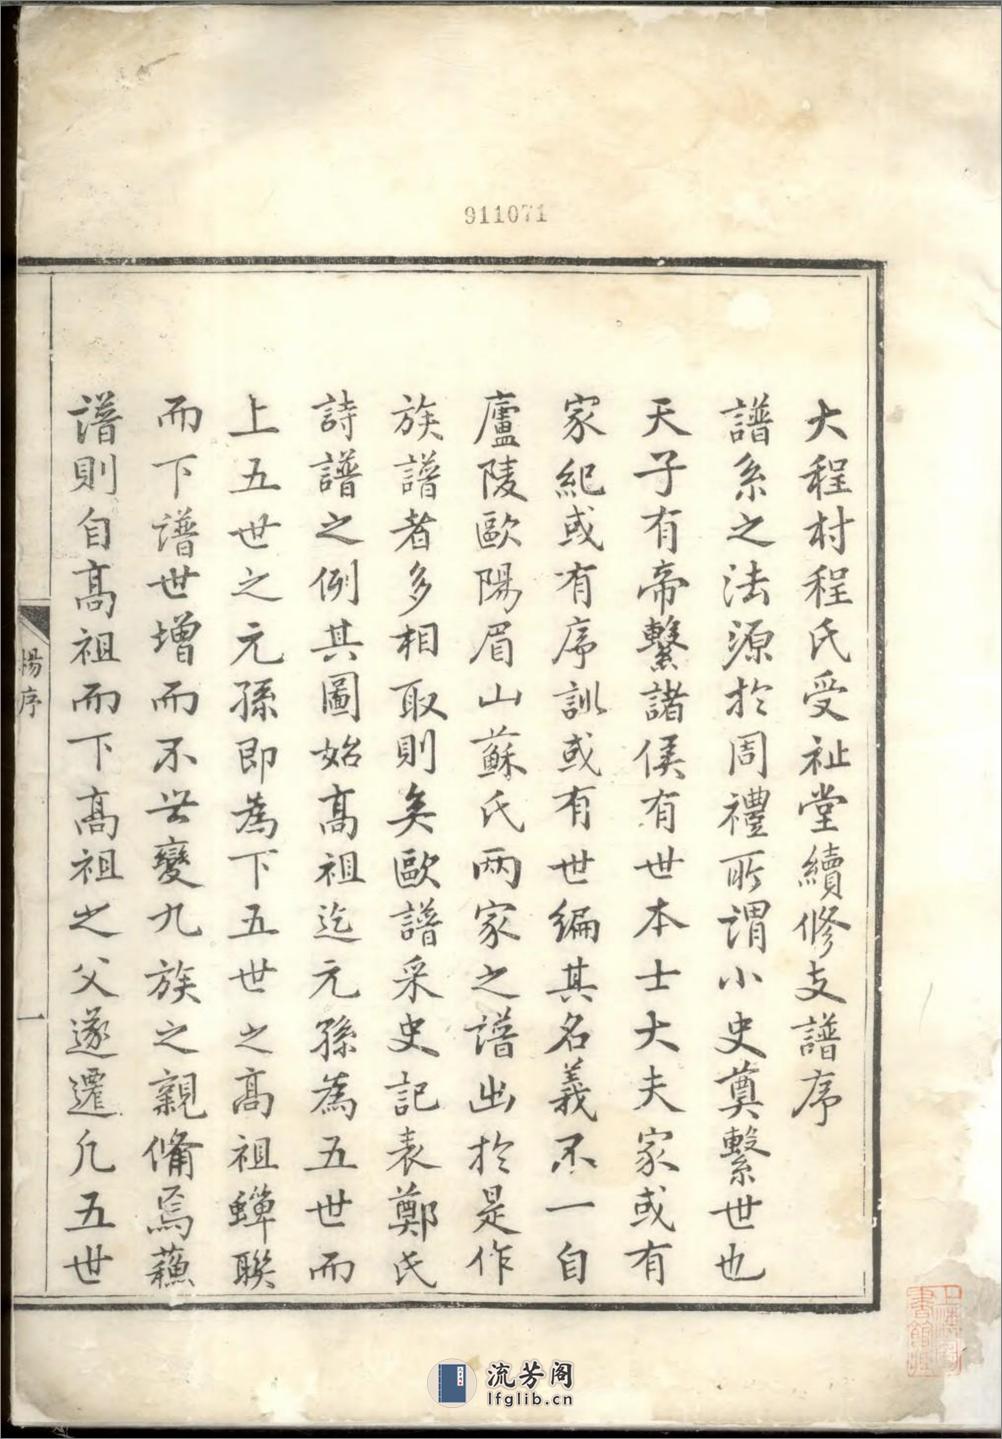 911071
大程村程氏受祉堂續修支譜序
譜系之法源於周禮所謂小史奠繫世也
天子有帝繫諸侯有世本士大夫家或有
家紀或有序訓或有世編其名義不一自
廬陵歐陽眉山蘇氏兩家之譜出於是作
族譜者多相取則矣歐譜采史記表鄭氏
詩譜之例其圖始高祖迄元孫為五世而
上五世之元孫即為下五世之高祖蟬聯
而下譜世增而不世變九族之親備焉蘇
譜則自高祖而下高祖之父遂遷凡五世
楊序
一
流芳阁
lfglib.cn